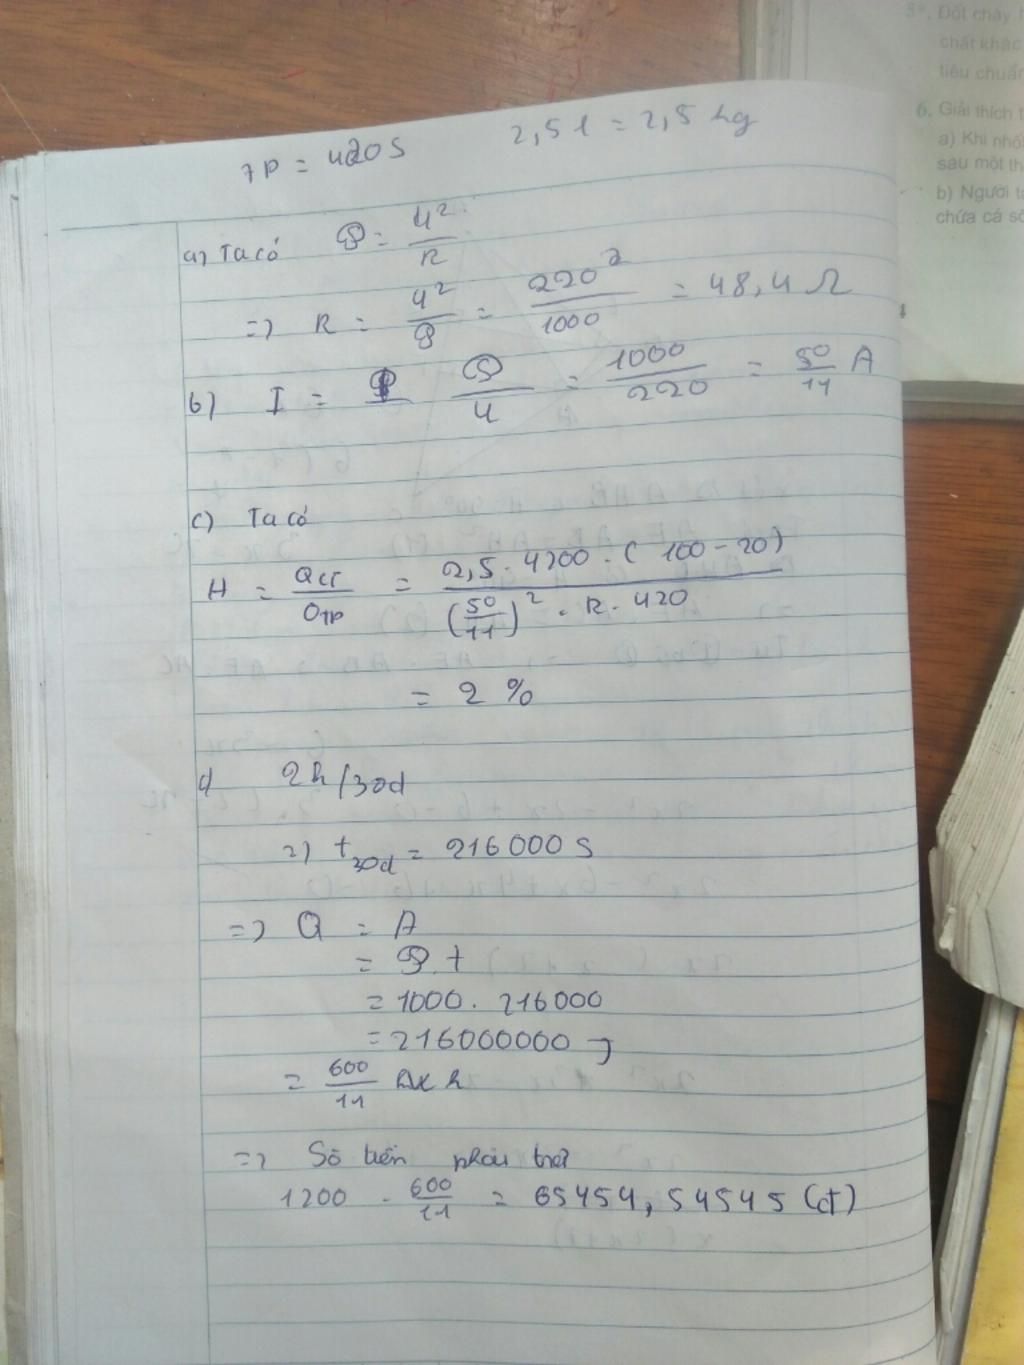 5*. Đốt cháy
chất khác
tiêu chuẩn
6. Giải thích
a) Khi nhỏ
sau một th
b) Người ta
chứa cá số
7P = 420 S 2,5 l = 2,5 kg
a) Ta có P = U²/R
=> R = U²/P = 220²/1000 = 48,4 Ω
b) I = P/U = 1000/220 = 50/11 A
c) Ta có
H = Qci/Qtp = 2,5 . 4200 . (100 - 20)/(50/11)² . R . 420
= 2 %
d 2h/30d
=> t30d = 216000 S
=> Q = A
= P. t
= 1000. 216000
= 216000000 J
= 600/11 h
=> Số tiền phải trả
1200 . 600/11 = 65454, 54545 (đ)